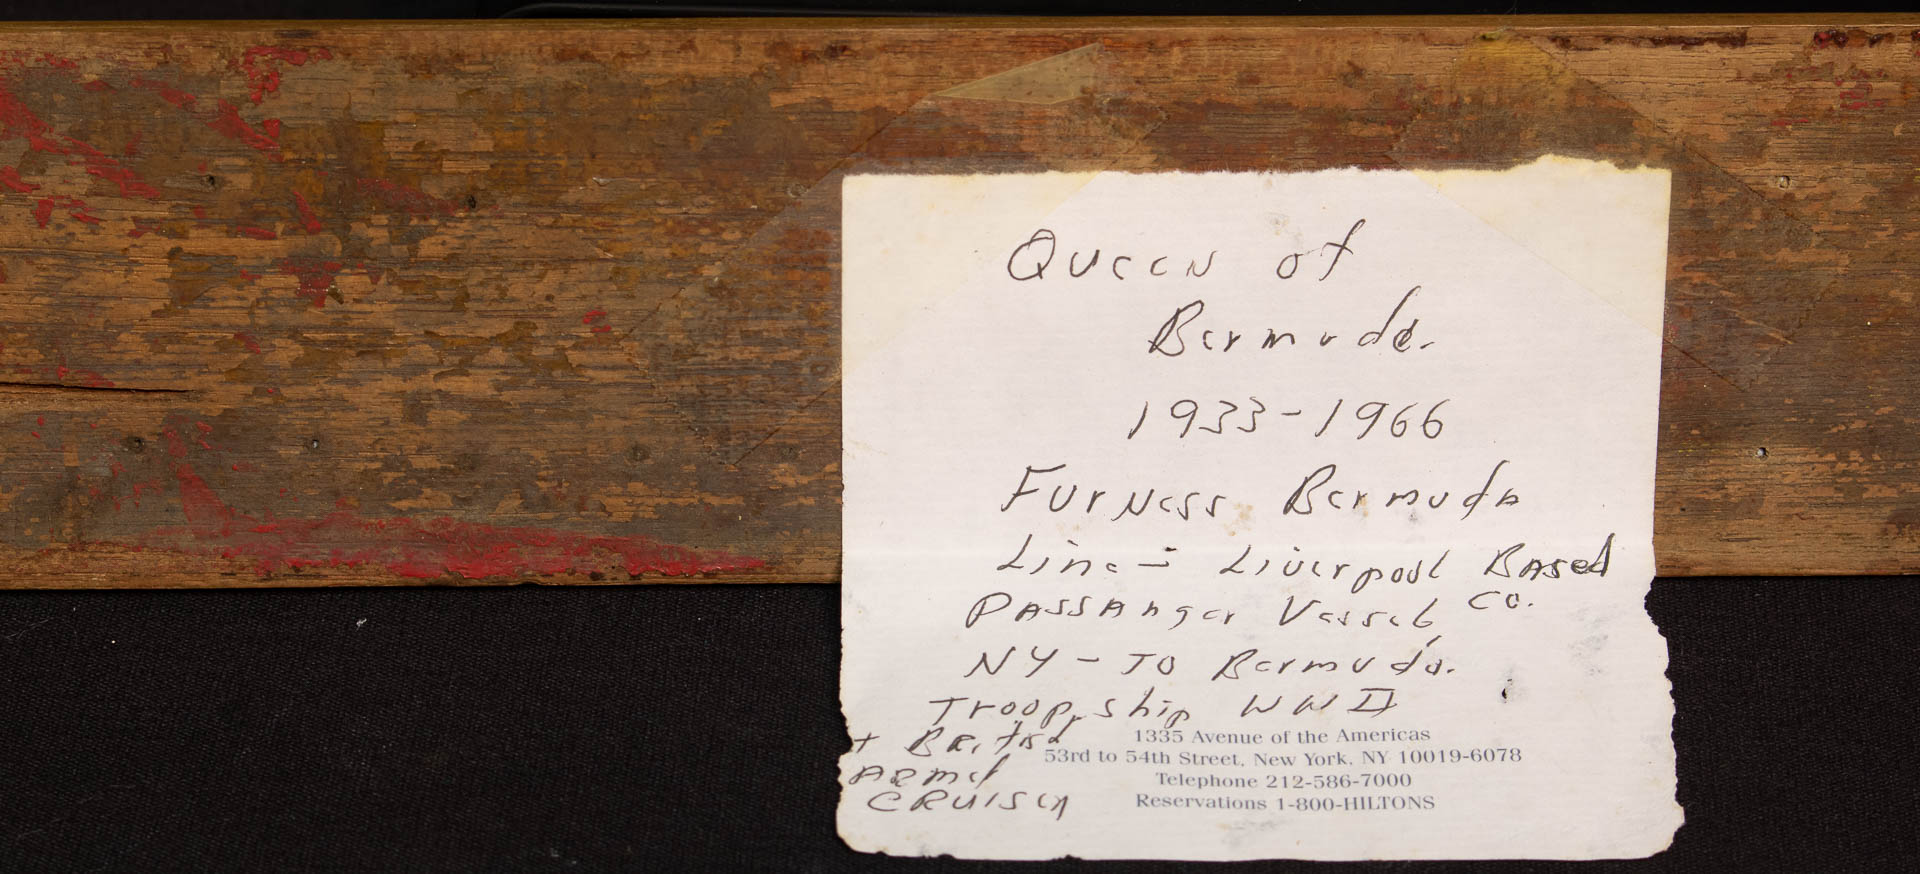 Queen of
Bermuda.
1933-1966
Furness Bermuda
Line - Liverpool Based
Passanger Vessel, Co.
NY - TO Bermuda.
Troopship WW II
+ British
Armed
Cruiser
1335 Avenue of the Americas
53rd to 54th Street, New York, NY 10019-6078
Telephone 212-586-7000
Reservations 1-800-HILTONS